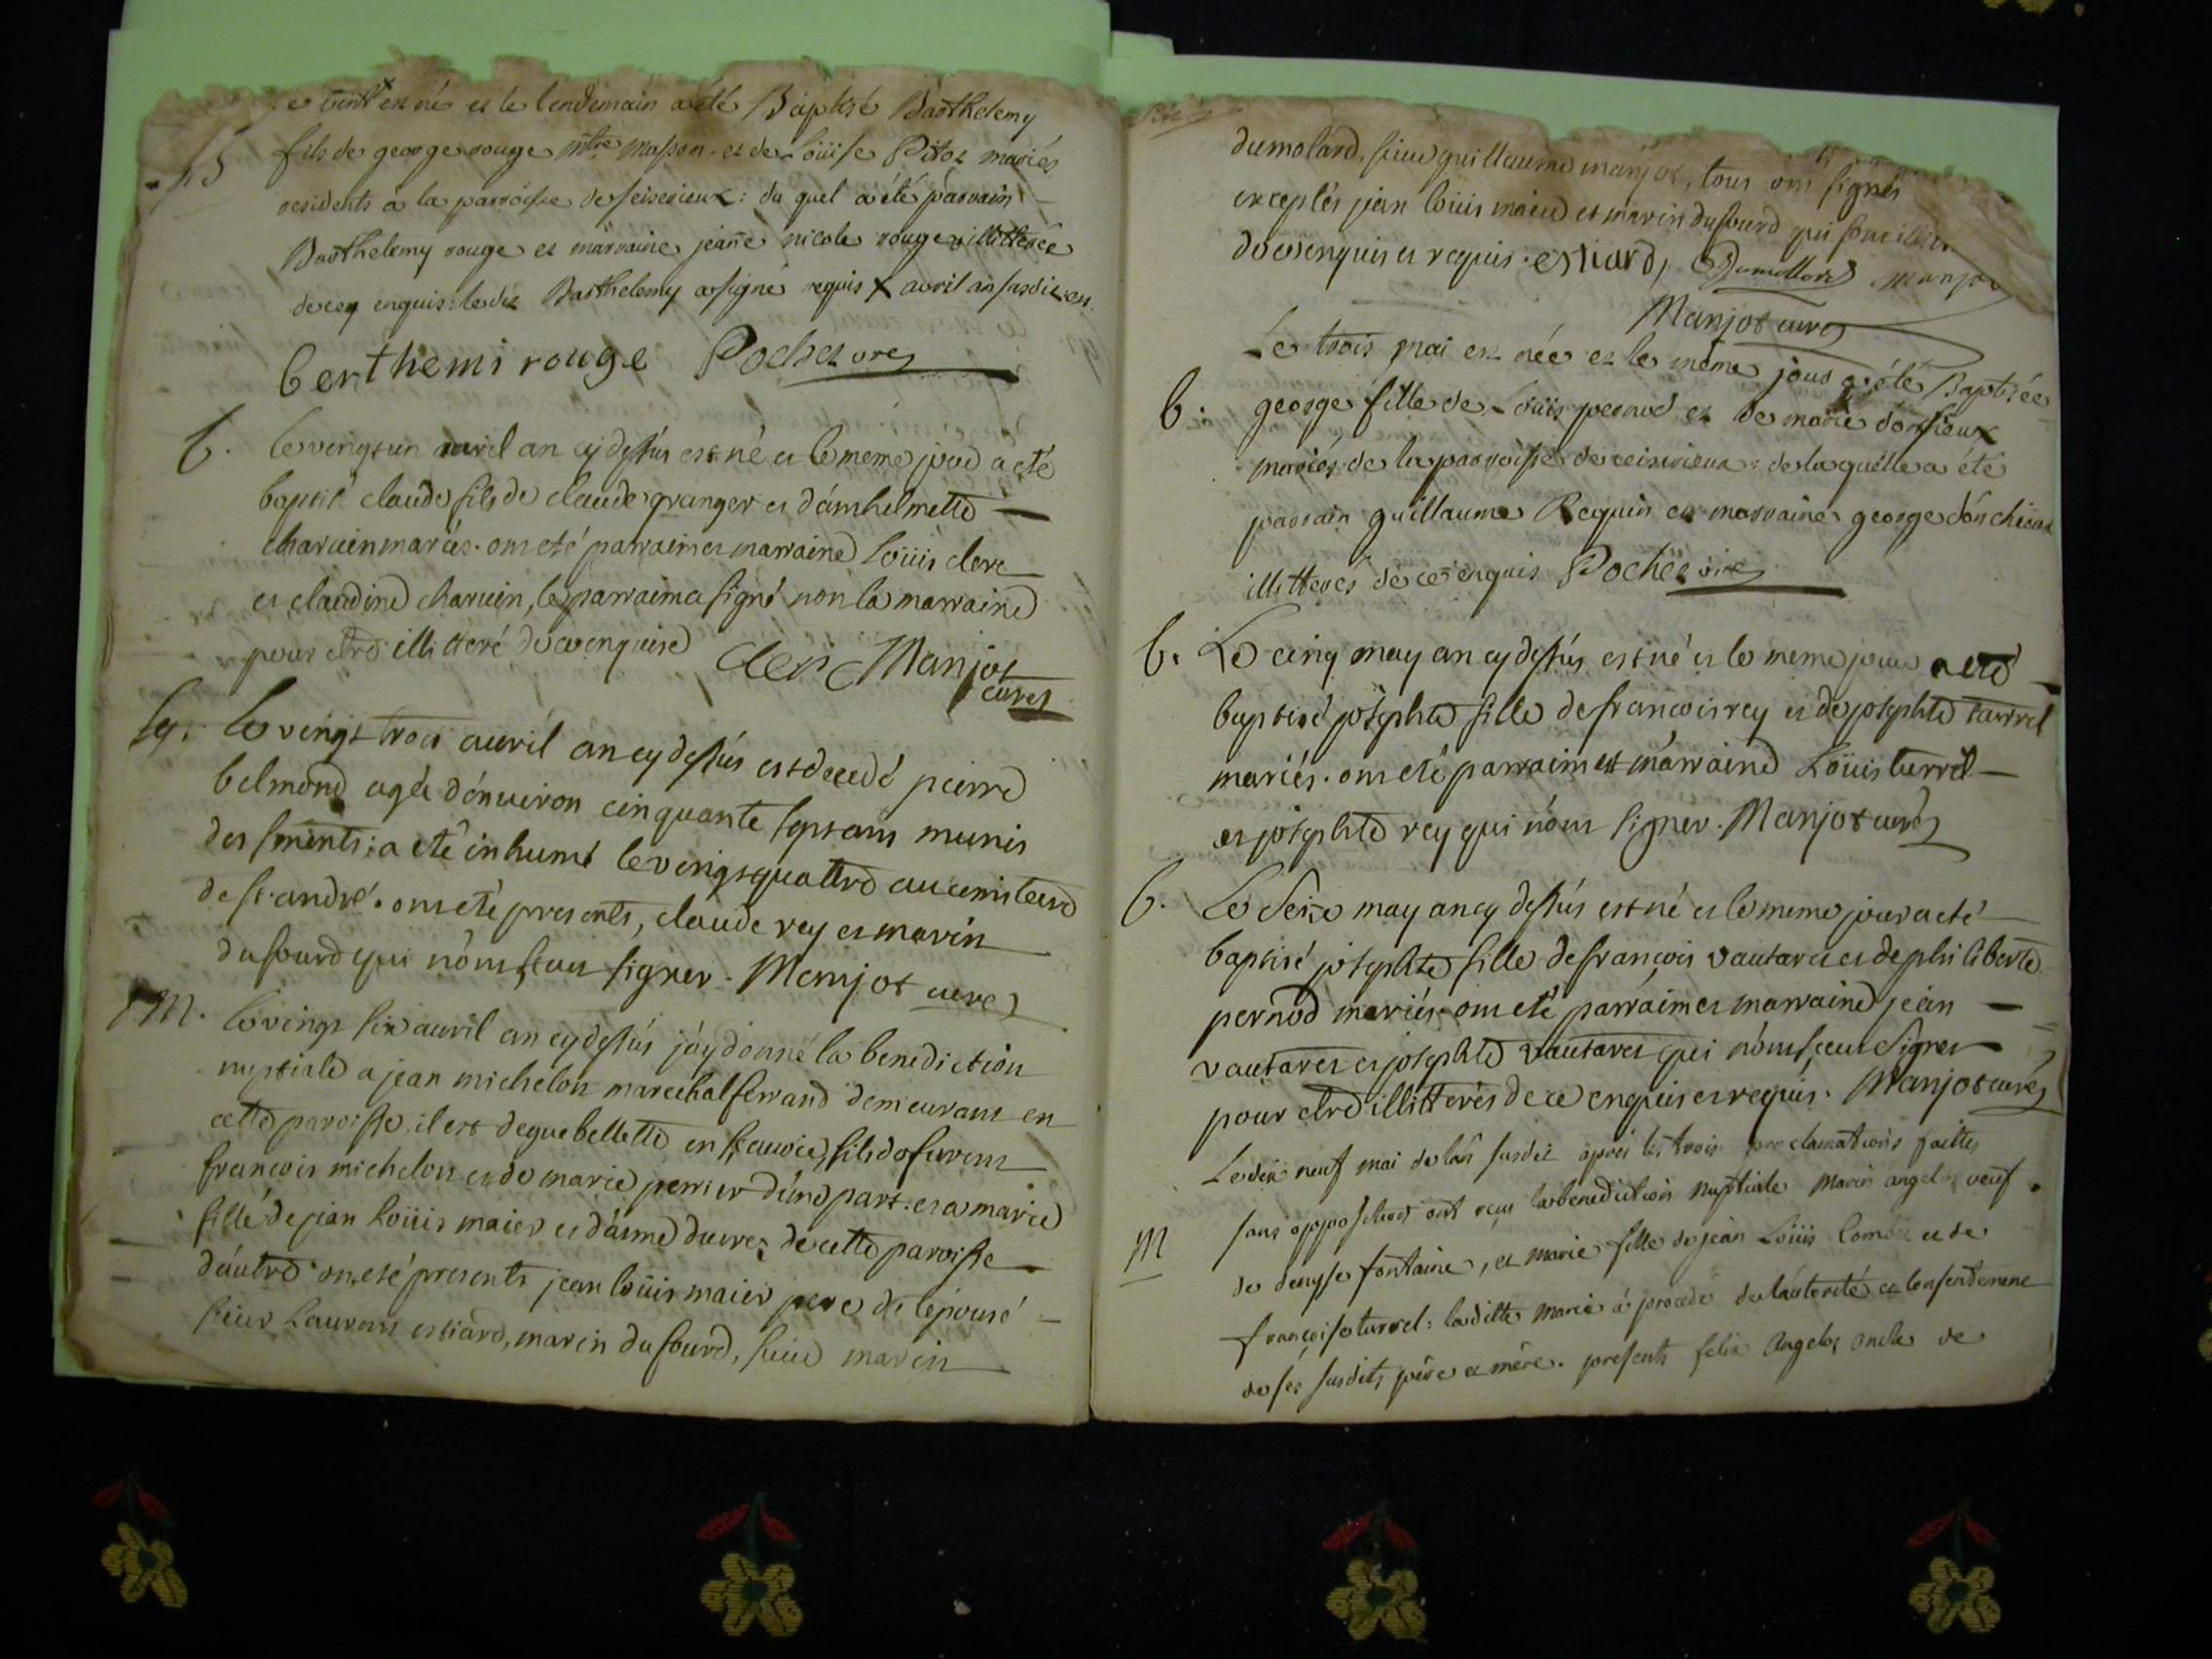 vint est né et le lendemain a été Baptisé Barthelemy
fils de george rouge mtre masson et de Loüise Pitot mariés
residents à la parroisse de seiserieux: du quel a été parrain
Barthelemy rouge et marraine jeane nicole rouge illitterée
de ce enquis: ledit Barthelemy a signé requis X avril an susdit
berthemi rouge Pochet
b. Le vingt un avril an cy dessus est né et le même jour a eté
baptisé claude fils de claude granger et d'anthelmette
charuin mariés. ont eté parrain et marraine Loüis clerc
et claudine charuin, le parrain a signé non la marraine
pour etre illitteré de ce enquise
clerc Manjot
curé
Le vingt trois auril an cy dessus est decedé pierre
belmond agé d'enuiron cinquante sept ans munis
des srments; a eté inhumé le vingt quatre au cemitiere
de st. andré. ont eté presents, claude rey et marin
dufourd qui n'ont sceu signer. Manjot curé
M. Le vingt six auril an cy dessus j'ay donné la benediction
nuptiale a jean michelon marechal ferrand demeurant en
cette paroisse, il est deguebellette en sauoie, fils de
francois michelon et de marie perrier d'une part. et a marie
fille de jean Loüis maier et d'aime de cette paroisse
d'autre ont eté presents jean loüis maier pere de l'epouse
sieur Laurent estiard, marin dufourd, sieur marin
dumolard, sieur guillaume manjot, tous ont signés
exceptés jean loüis maier et marin dufourd qui sont
de ce enquis et requis. estiard, Dumollard manjot
Manjot curé
Le trois mai est née et le même jour a été Baptisée
b. george fille de Loüis pernod et de marie donsieux
mariés de la parroisse de ceiserieux: de laquelle a été
parrain guillaume Requin et marraine george
illitteres de ce enquis Pochet
b. Le cinq may an cy dessus est né et le meme jour a eté
baptisé josephte fille de francois rey et de josephte turrel
mariés. ont eté parrain et marraine Loüis turrel
et josephte rey qui n'ont signer. Manjot curé
b. Le seize may an cy dessus est né et le meme jour a eté
baptisé josephte fille de françois vautaret et de philiberte
pernod mariés. ont eté parrain et marraine jean
vautaret et josephte vautaret qui n'ont sceu signer
pour etre illitterés de ce enquis et requis. Manjot curé
Le dix neuf mai de l'an susdit apres les trois proclamations faittes
M sans opposition ont reçu la benediction nuptiale Marin angelot veuf
de denyse fontaine, et marie fille de jean Loüis et de
françoise turrel: laditte marie a procedé de l'autorité et consentement
de ses susdits père et mère. presents felix angelot oncle de